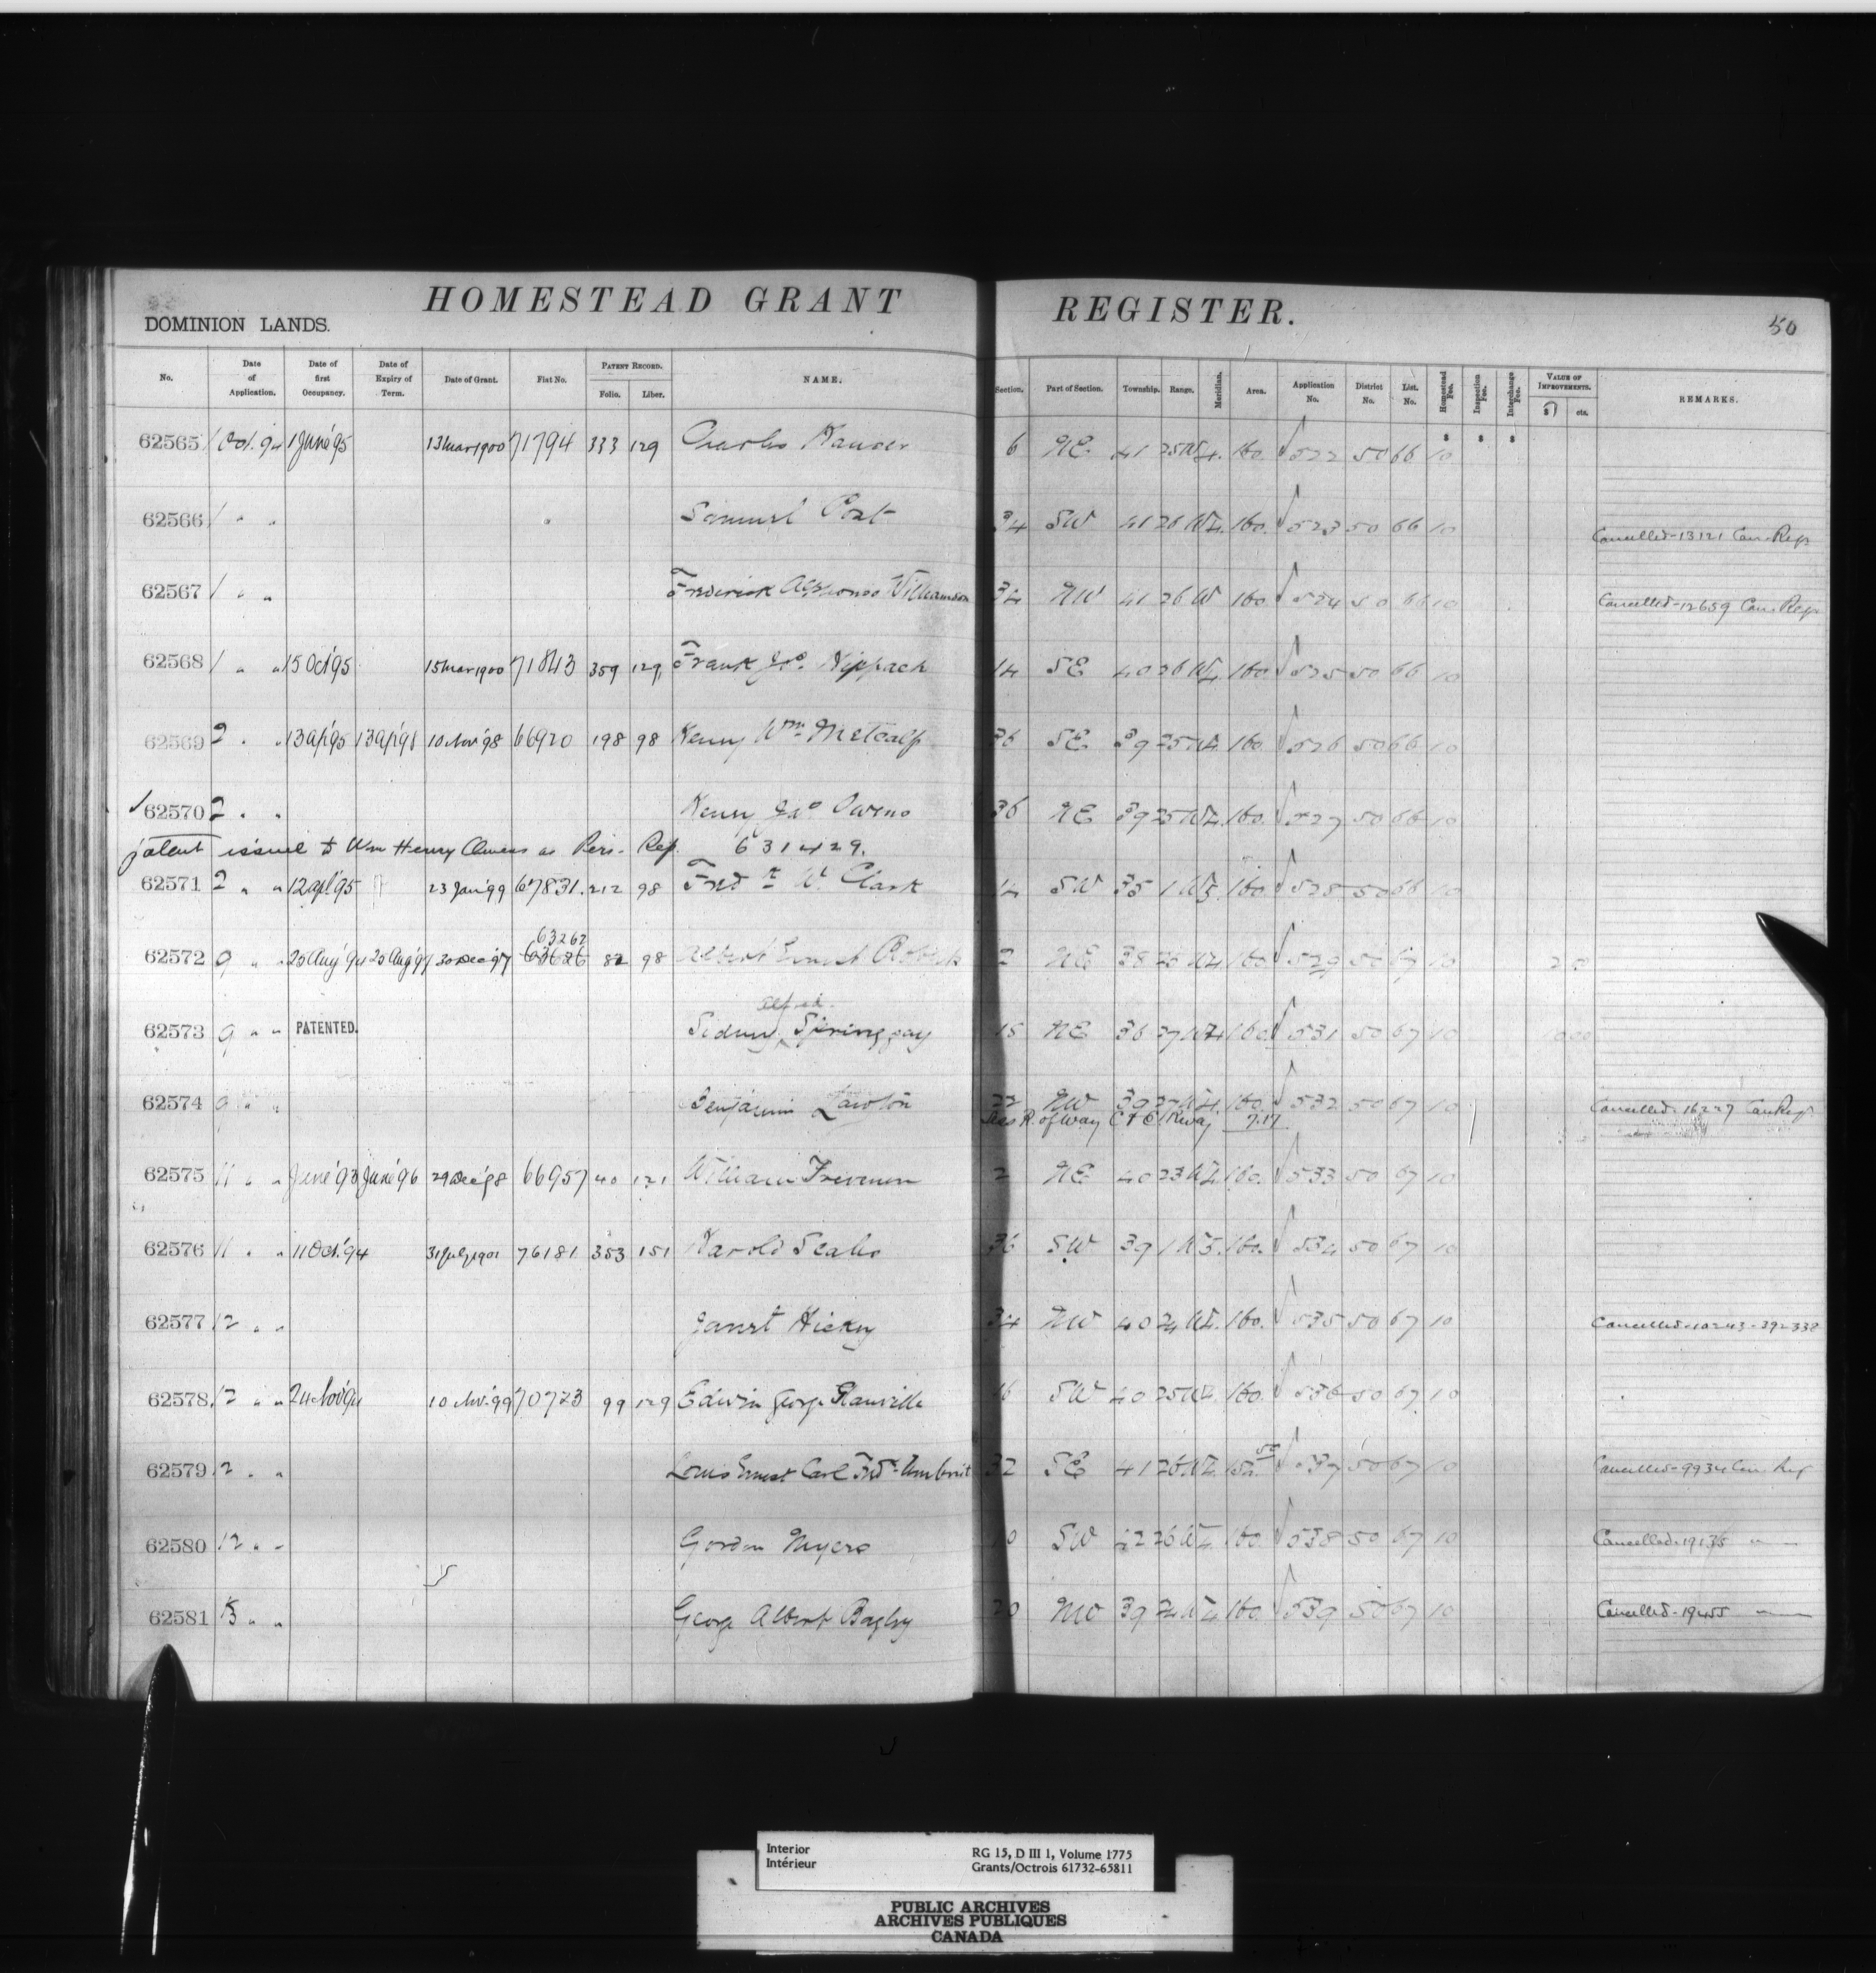 HOMESTEAD GRANT REGISTER.
50
DOMINION LANDS.
No. Date of Application. Date of first Occupancy. Date of Expiry of Term. Date of Grant. Fiat No. PATENT RECORD. Folio. Liber. NAME. Section. Part of Section. Township. Range. Meridian. Area. Application No. District No. List. No. Homestead Fee. Inspection Fee. Interchange Fee. VALUE OF IMPROVEMENTS. $ cts. REMARKS.
62565 1 Oct. 94 1 June '95 13 Mar 1900 71794 333 129 Charles 6 NE 41 25 W4. 160. 522 50 66 10
62566 1 " " Samuel 34 SW 41 26 W4. 160. 523 50 66 10 Cancelled-13121 Can. Regr
62567 1 " " Frederick Alphonso Williamson 34 NW 41 26 W 160. 524 50 66 10 Cancelled-12659 Can. Regr
62568 1 " " 15 Oct '95 15 Mar 1900 71843 359 129 Frank Geo. Nippach 14 SE 40 26 W4. 160. 525 50 66 10
62569 2 " " 13 Apl '95 13 Apl '98 10 Nov '98 66920 198 98 Henry Wm. Metcalf 36 SE 39 25 W4. 160. 526 50 66 10
62570 2 " " Henry Owens 36 NE 39 25 W4. 160. 527 50 66 10
patent issued to Wm Henry Owens as Pers. Rep. 631429.
62571 2 " " 12 Apl '95 23 Jan '99 67831. 212 98 Fredk W. Clark 14 SW 35 1 W5. 160. 528 50 66 10
63262
62572 9 " " 20 Aug '94 20 Aug '97 30 Dec '97 63626 82 98 Albert Ernest 2 NE 38 160. 529 50 67 10
Alfred
62573 9 " " PATENTED. Sidney Springgay 15 NE 36 27 W4 160. 531 50 67 10
62574 9 " " Benjamin Lawton 22 NW 39 27 W4. 160. 532 50 67 10 Cancelled-16227 Can. Regr
Less R. of Way C & E Rway 7.17
62575 11 " " June '93 June '96 29 Dec '98 66957 40 121 William Freeman 2 NE 40 23 W4. 160. 533 50 67 10
62576 11 " " 11 Oct. '94 31 July 1901 76181 353 151 Harold 36 SW 39 1 W5. 160. 534 50 67 10
62577 12 " " Janet Hickey 34 NW 40 24 W4. 160. 535 50 67 10 Cancelled-10243-392338
62578 12 " " 24 Nov '94 10 Nov. '99 70723 99 129 Edwin George Glanville 16 SW 40 25 W4. 160. 536 50 67 10
62579 12 " " Louis Ernest Carl Fredk Umbrit 32 SE 41 26 W4. 537 50 67 10 Cancelled-9934 Can. Reg
62580 12 " " Gordon Myers SW 42 26 W4. 160. 538 50 67 10 Cancelled-19135 " —
62581 13 " " George Albert Bagley 20 NW 39 24 W4 160. 539 50 67 10 Cancelled-19455 " —
Interior
Intérieur
RG 15, D III 1, Volume 1775
Grants/Octrois 61732-65811
PUBLIC ARCHIVES
ARCHIVES PUBLIQUES
CANADA